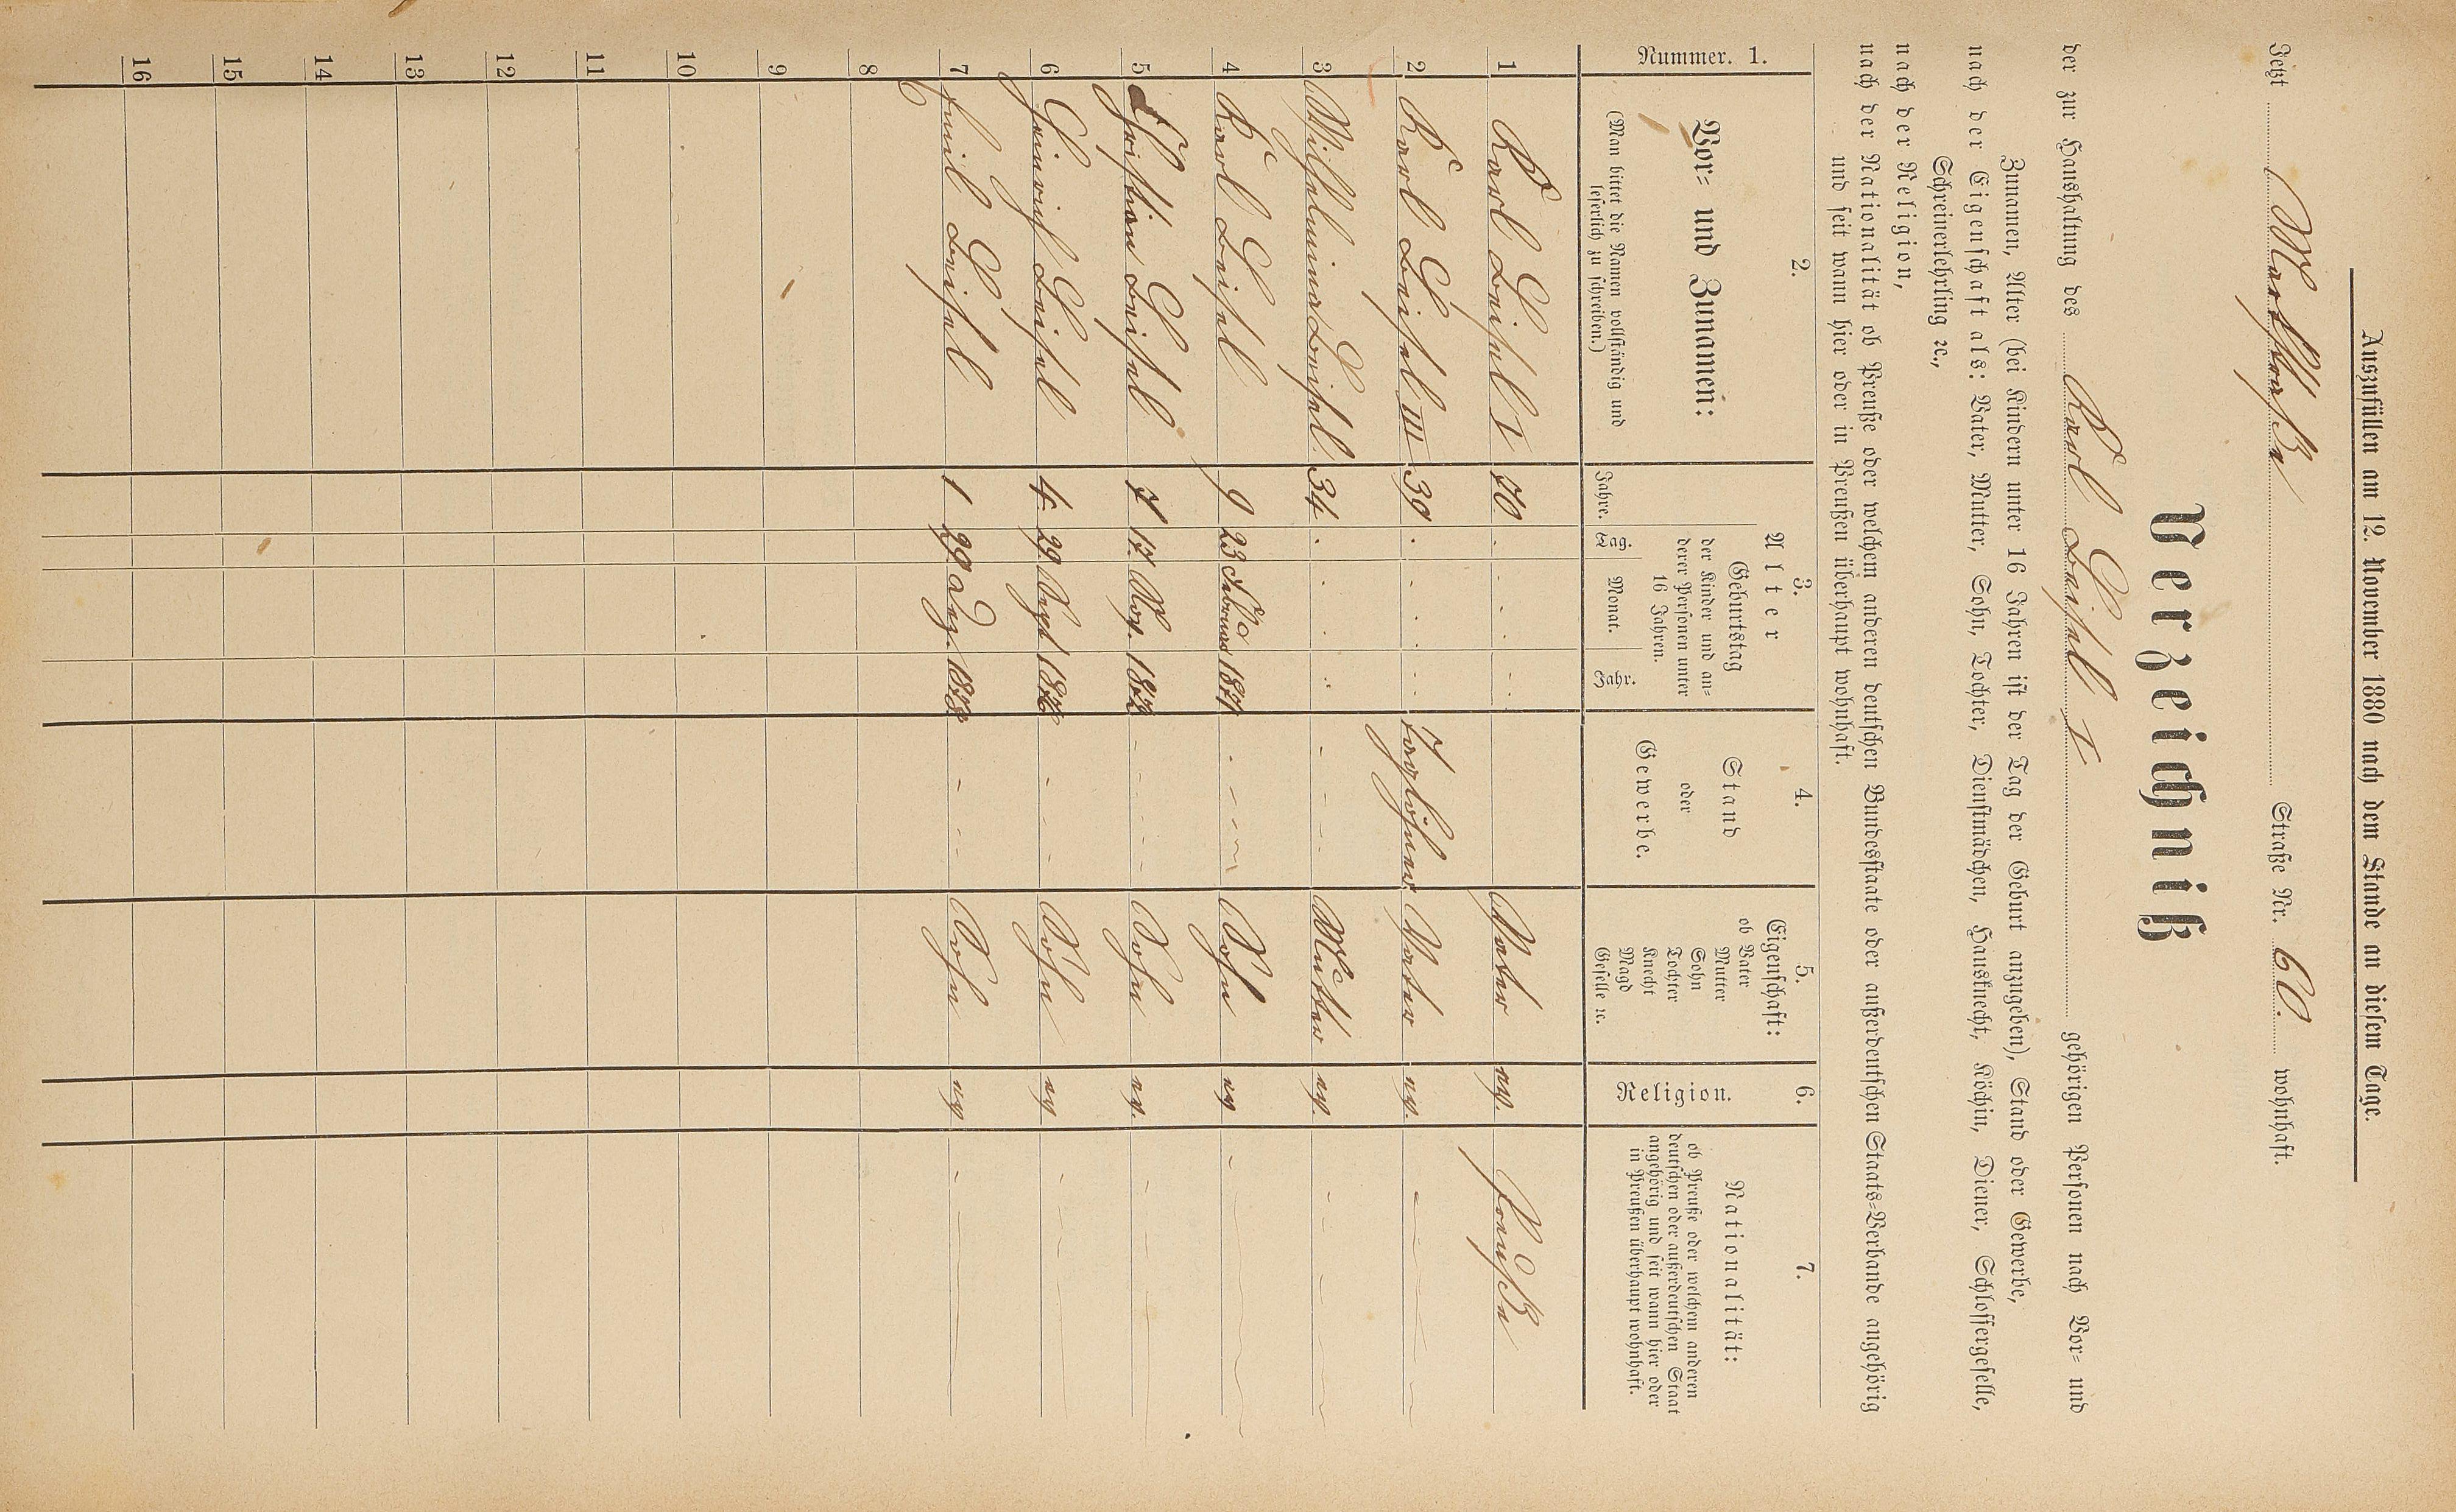 Auszufüllen am 12. November 1880 nach dem Stande an diesem Tage.
Jetzt Marktstraße Straße Nr. 60. wohnhaft.
Verzeichniß
der zur Haushaltung des Karl Beisel I gehörigen Personen nach Vor- und
Zunamen, Alter (bei Kindern unter 16 Jahren ist der Tag der Geburt anzugeben), Stand oder Gewerbe,
nach der Eigenschaft als: Vater, Mutter, Sohn, Tochter, Dienstmädchen, Hausknecht, Köchin, Diener, Schlossergeselle,
Schreinerlehrling ꝛc.,
nach der Religion,
nach der Nationalität ob Preuße oder welchem anderen deutschen Bundesstaate oder außerdeutschen Staats-Verbande angehörig
und seit wann hier oder in Preußen überhaupt wohnhaft.
Nummer. 1.
2.
Vor- und Zunamen:
(Man bittet die Namen vollständig und
leserlich zu schreiben.)
3.
Alter
Geburtstag
der Kinder und an-
derer Personen unter
16 Jahren.
Jahre. Tag. Monat. Jahr.
4.
Stand
oder
Gewerbe.
5.
Eigenschaft:
ob Vater
Mutter
Sohn
Tochter
Knecht
Magd
Geselle ꝛc.
6.
Religion.
7.
Nationalität:
ob Preuße oder welchem anderen
deutschen oder außerdeutschen Staat
angehörig und seit wann hier oder
in Preußen überhaupt wohnhaft.
1 Karl Beisel I 70 Vater ev. Preuße
2 Karl Beisel III 39 Taglöhner Vater ev.
3 Wilhelmina Beisel 34 Mutter ev.
4 Karl Beisel 9 23 Februar 1871 Sohn ev
5 Christian Beisel 7 17. Nov. 1872 Sohn ev.
6 Heinrich Beisel 4 29 Sept 1876 Sohn ev
7 Emil Beisel 1 29 Aug. 1878 Sohn ev.
8
9
10
11
12
13
14
15
16